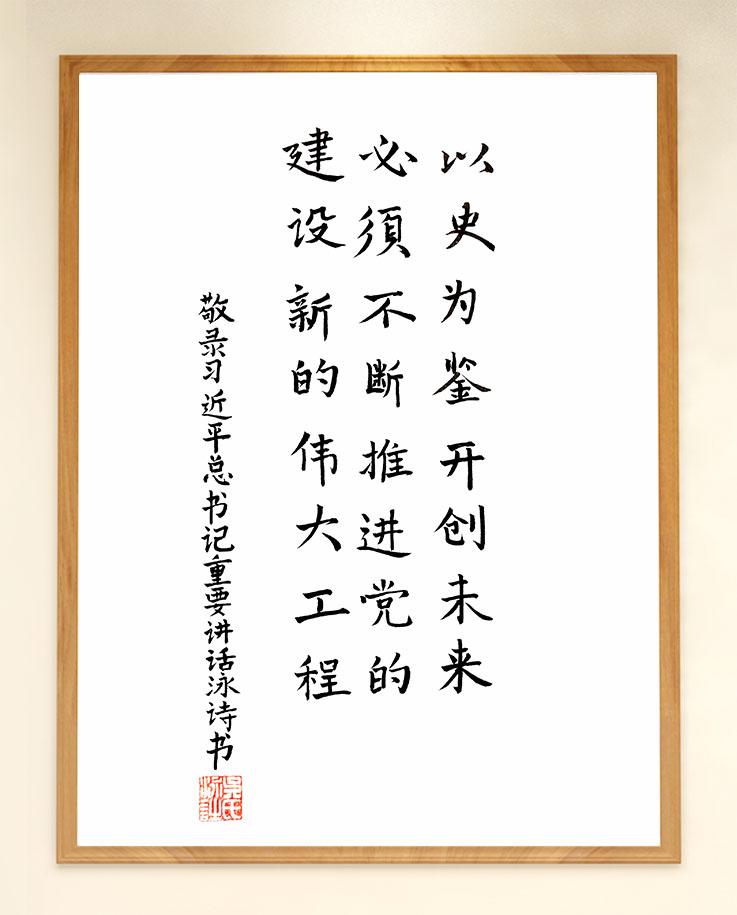 以史为鉴开创未来
必须不断推进党的
建设新的伟大工程
敬录习近平总书记重要讲话泳诗书